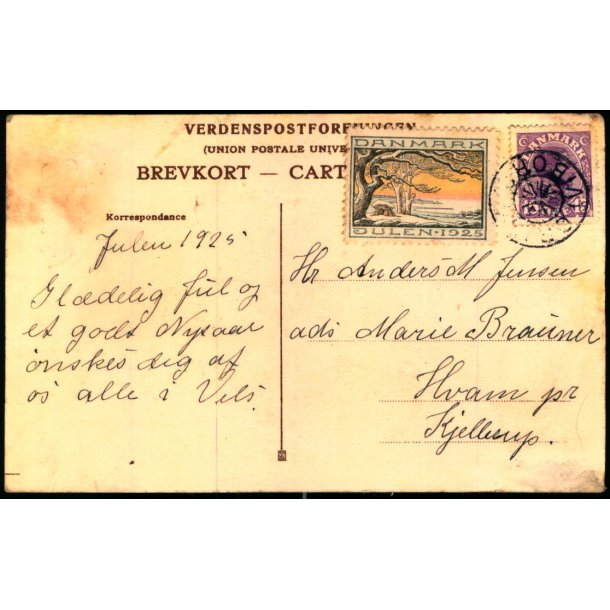 VERDENSPOSTFORENINGEN
(UNION POSTALE UNIVE
BREVKORT — CART
DANMARK
JULEN · 1925
DANMARK
VIBORG
Korrespondance
Julen 1925
Glædelig Jul og
et godt Nytaar
ønskes dig af
os alle i Vels.
Hr Anders M Jensen
ads Marie Brauner
Hvam pr
Kjellerup.